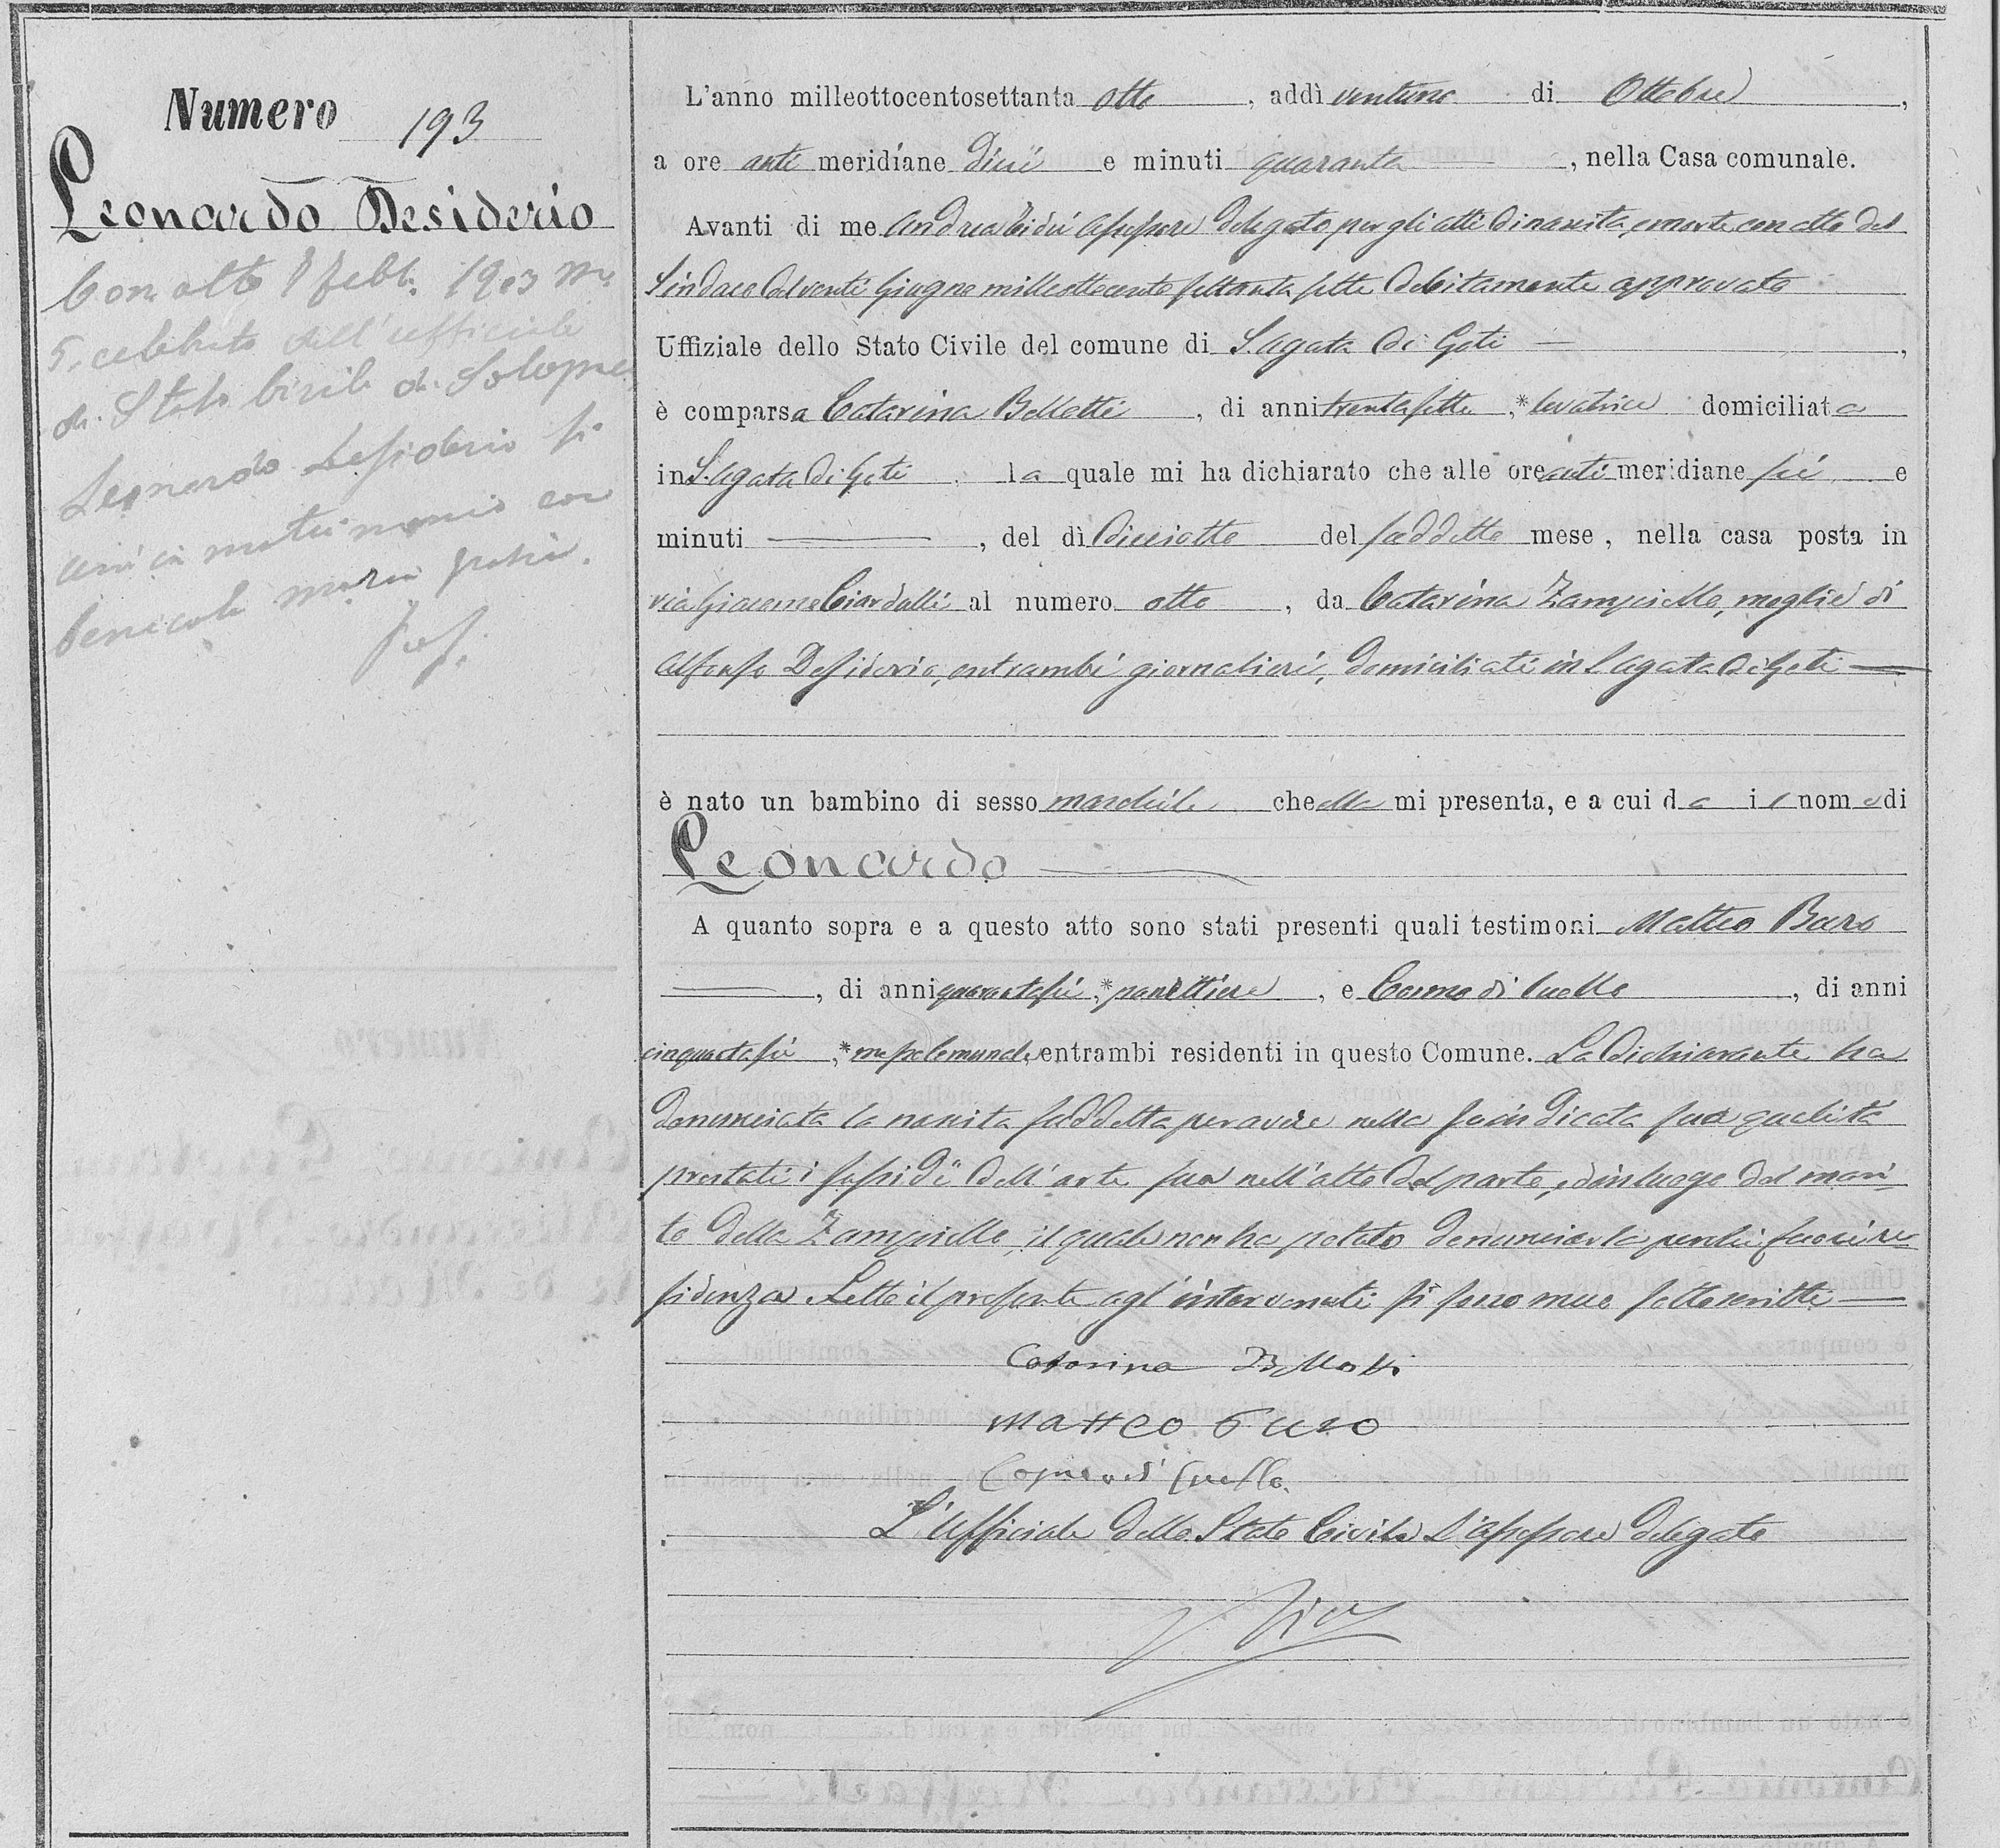 Numero 193
Leonardo Desiderio
Con atto 8 febb. 1903 N.
5, celebrato dall'ufficiale
di Stato Civile di Solopaca
Leonardo Desiderio si
unì in matrimonio con
maria grazia.
L'anno milleottocentosettanta otto, addì ventuno di Ottobre,
a ore anti meridiane dieci e minuti quaranta, nella Casa comunale.
Avanti di me Andrea assessore delegato per gli atti di nascita, e morte con atto del
Sindaco del venti Giugno milleottocento settanta sette debitamente approvato
Uffiziale dello Stato Civile del comune di S. Agata di Goti,
è comparsa Catarina Bellotti, di anni trentasette, *levatrice domiciliata
in S. Agata di Goti la quale mi ha dichiarato che alle ore anti meridiane sei e
minuti —, del dì dieciotto del suddetto mese, nella casa posta in
via Giacomo Ciardulli al numero otto, da Catarina Zampiello, moglie di
Alfonso Desiderio, entrambi giornalieri, domiciliati in S. Agata di Goti —
è nato un bambino di sesso maschile che ella mi presenta, e a cui dà il nome di
Leonardo
A quanto sopra e a questo atto sono stati presenti quali testimoni Matteo Buro
—, di anni quarantasei, *panettiere, e Cosmo di Cuollo, di anni
cinquantasei, * entrambi residenti in questo Comune. La dichiarante ha
denunciata la nascita suddetta per avere nella suindicata sua qualità
prestati i sussidî dell'arte sua nell'atto del parto, ed in luogo del mari-
to della Zampiello, il quale non ha potuto denunciarla perchè fuori re-
sidenza. Letto il presente agl'intervenuti si sono meco sottoscritti —
Catarina Bellotti
Matteo Buro
Cosmo di Cuollo
L'Uffiziale dello Stato Civile L'assessore delegato